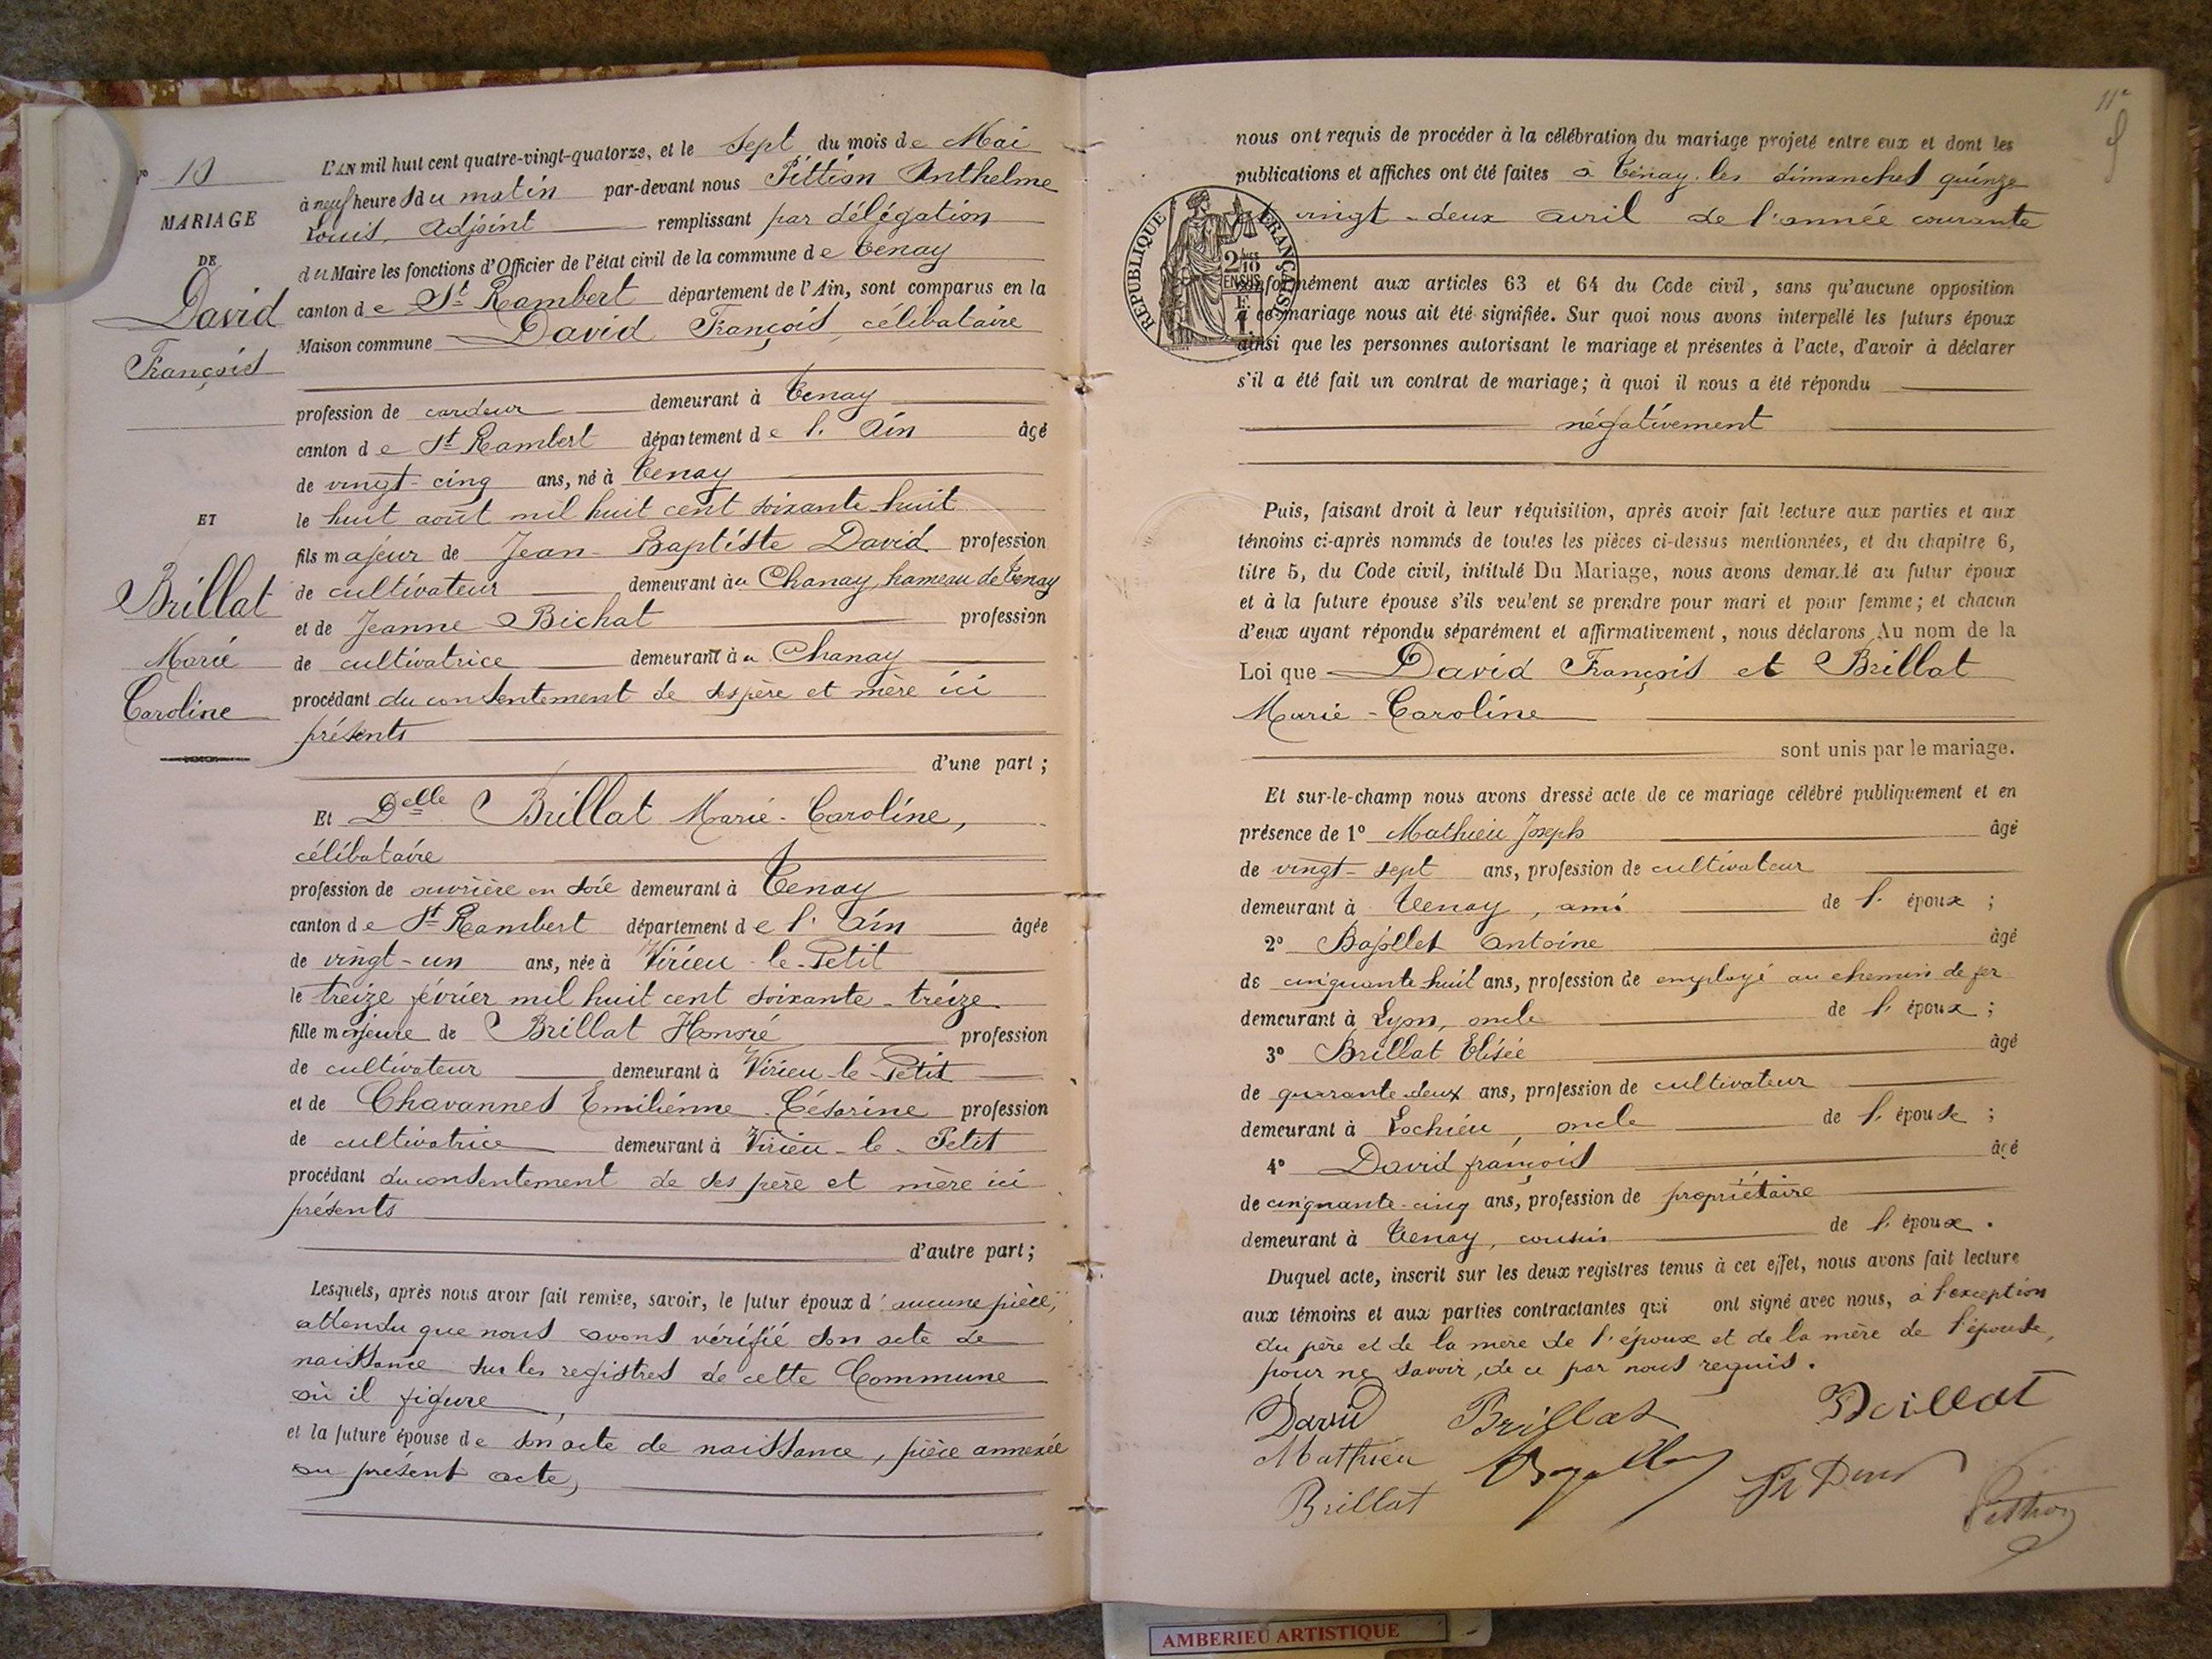 N° 10
MARIAGE
DE
David
François
ET
Brillat
Marie
Caroline
L'AN mil huit cent quatre-vingt-quatorze, et le sept du mois de Mai
à neuf heures du matin par-devant nous Pittion Anthelme
Louis, Adjoint remplissant par délégation
du Maire les fonctions d'Officier de l'état civil de la commune de Tenay
canton de St Rambert département de l'Ain, sont comparus en la
Maison commune David François, célibataire
profession de cardeur demeurant à Tenay
canton de St Rambert département de l'Ain âgé
de vingt-cinq ans, né à Tenay
le huit août mil huit cent soixante-huit
fils majeur de Jean-Baptiste David profession
de cultivateur demeurant à Chanay, hameau de Tenay
et de Jeanne Bichat profession
de cultivatrice demeurant à Chanay
procédant du consentement de ses père et mère ici
présents
d'une part ;
Et Delle Brillat Marie-Caroline,
célibataire
profession de ouvrière en soie demeurant à Tenay
canton de St Rambert département de l'Ain âgée
de vingt-un ans, née à Virieu-le-Petit
le treize février mil huit cent soixante-treize
fille majeure de Brillat Honoré profession
de cultivateur demeurant à Virieu-le-Petit
et de Chavannes Emilienne-Césarine profession
de cultivatrice demeurant à Virieu-le-Petit
procédant du consentement de ses père et mère ici
présents
d'autre part ;
Lesquels, après nous avoir fait remise, savoir, le futur époux d'aucune pièce,
attendu que nous avons vérifié son acte de
naissance sur les registres de cette Commune
où il figure,
et la future épouse de son acte de naissance, pièce annexée
au présent acte,
11e
nous ont requis de procéder à la célébration du mariage projeté entre eux et dont les
publications et affiches ont été faites à Tenay les dimanches quinze
et vingt-deux avril de l'année courante
RÉPUBLIQUE FRANÇAISE
2/10 EN SUS
conformément aux articles 63 et 64 du Code civil, sans qu'aucune opposition
à ce mariage nous ait été signifiée. Sur quoi nous avons interpellé les futurs époux
ainsi que les personnes autorisant le mariage et présentes à l'acte, d'avoir à déclarer
s'il a été fait un contrat de mariage; à quoi il nous a été répondu
négativement
Puis, faisant droit à leur réquisition, après avoir fait lecture aux parties et aux
témoins ci-après nommés de toutes les pièces ci-dessus mentionnées, et du chapitre 6,
titre 5, du Code civil, intitulé Du Mariage, nous avons demandé au futur époux
et à la future épouse s'ils veulent se prendre pour mari et pour femme; et chacun
d'eux ayant répondu séparément et affirmativement, nous déclarons Au nom de la
Loi que David François et Brillat
Marie-Caroline
sont unis par le mariage.
Et sur-le-champ nous avons dressé acte de ce mariage célébré publiquement et en
présence de 1° Mathieu Joseph âgé
de vingt-sept ans, profession de cultivateur
demeurant à Tenay, ami de l'époux ;
2° Bajollet Antoine âgé
de cinquante-huit ans, profession de employé au chemin de fer
demeurant à Lyon, oncle de l'époux ;
3° Brillat Elisée âgé
de quarante-deux ans, profession de cultivateur
demeurant à Lochieu, oncle de l'épouse ;
4° David françois âgé
de cinquante-cinq ans, profession de propriétaire
demeurant à Tenay, cousin de l'époux.
Duquel acte, inscrit sur les deux registres tenus à cet effet, nous avons fait lecture
aux témoins et aux parties contractantes qui ont signé avec nous, à l'exception
du père et de la mère de l'époux et de la mère de l'épouse,
pour ne savoir, de ce par nous requis.
David Brillat Brillat
Mathieu
Brillat Pittion
AMBERIEU ARTISTIQUE